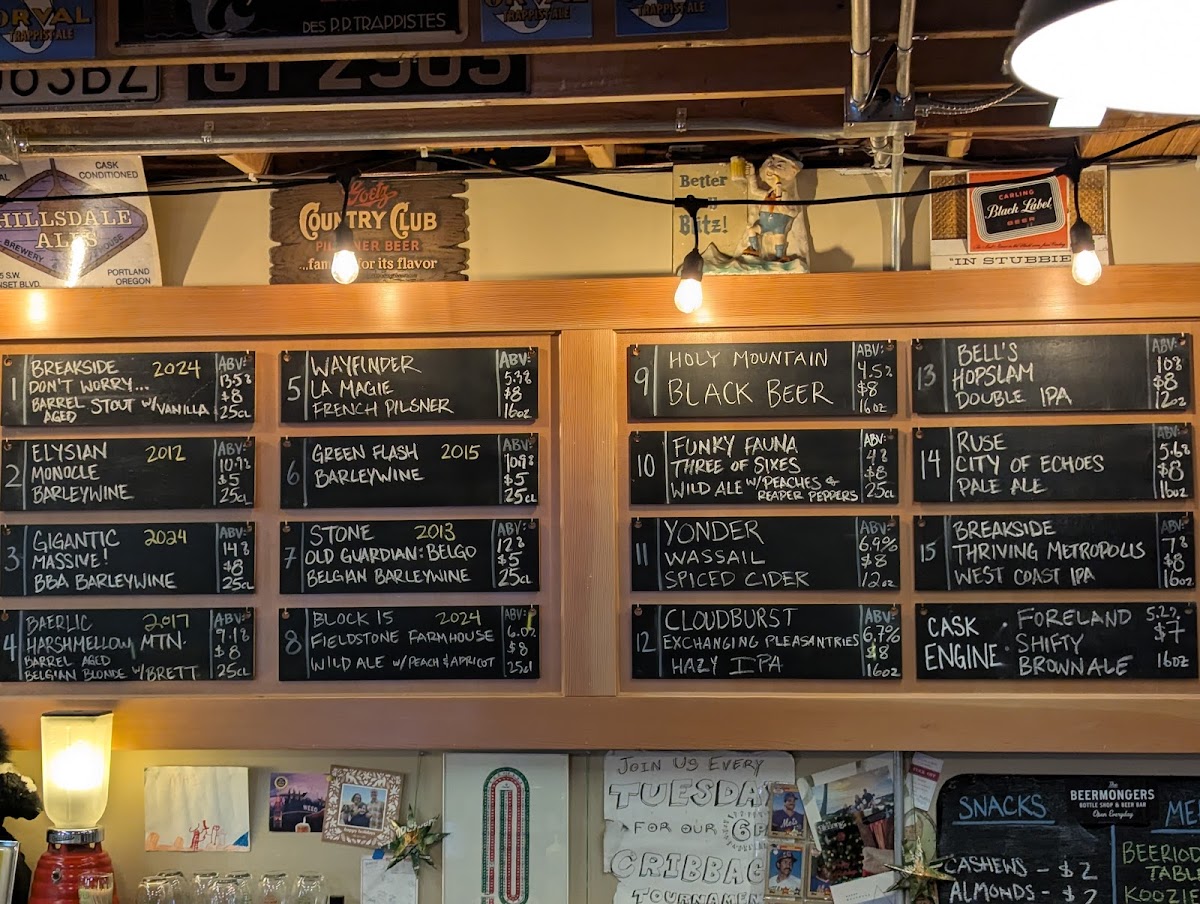 ORVAL
TRAPPIST ALE
DES P.P. TRAPPISTES
ORVAL
TRAPPIST ALE
TRAPPIST ALE
063BZ
GT 2503
CASK
CONDITIONED
HILLSDALE
ALES
BREWERY
PORTLAND
OREGON
Goetz
COUNTRY CLUB
PILSENER BEER
for its flavor
Better
Blitz!
CARLING
Black Label
BEER
"IN STUBBIE
1
BREAKSIDE 2024
DON'T WORRY...
BARREL STOUT W/ VANILLA
AGED
ABV:
13.5%
$8
25CL
2
ELYSIAN 2012
MONOCLE
BARLEYWINE
ABV:
10.9%
$5
25CL
3
GIGANTIC 2024
MASSIVE!
BBA BARLEYWINE
ABV:
14%
$8
25CL
4
BAERLIC 2017
HARSHMELLOW MTN.
BARREL AGED
BELGIAN BLONDE W/BRETT
ABV:
9.1%
$8
25CL
5
WAYFINDER
LA MAGIE
FRENCH PILSNER
ABV:
5.3%
$8
16oz
6
GREEN FLASH 2015
BARLEYWINE
ABV:
10.9%
$5
25CL
7
STONE 2013
OLD GUARDIAN: BELGO
BELGIAN BARLEYWINE
ABV:
12%
$5
25CL
8
BLOCK 15 2024
FIELDSTONE FARMHOUSE
WILD ALE W/ PEACH & APRICOT
ABV:
6.0%
$8
25cl
9
HOLY MOUNTAIN
BLACK BEER
ABV:
4.5%
$8
16oz
10
FUNKY FAUNA
THREE OF SIXES
WILD ALE W/PEACHES &
REAPER PEPPERS
ABV:
4%
$8
25CL
11
YONDER
WASSAIL
SPICED CIDER
ABV:
6.9%
$8
12oz
12
CLOUDBURST
EXCHANGING PLEASANTRIES
HAZY IPA
ABV:
6.7%
$8
16oz
13
BELL'S
HOPSLAM
DOUBLE IPA
ABV:
10%
$8
12oz
14
RUSE
CITY OF ECHOES
PALE ALE
ABV:
5.6%
$8
16oz
15
BREAKSIDE
THRIVING METROPOLIS
WEST COAST IPA
ABV:
7%
$8
16oz
CASK
ENGINE
FORELAND
SHIFTY
BROWN ALE
5.2%
$7
16oz
JOIN US EVERY
TUESDAY
FOR OUR 6P
CRIBBAG
TOURNAMEN
The
BEERMONGERS
BOTTLE SHOP & BEER BAR
Open Everyday
SNACKS
CASHEWS - $2
ALMONDS - $2
ME
BEERIOD
TABLE
KOOZIE